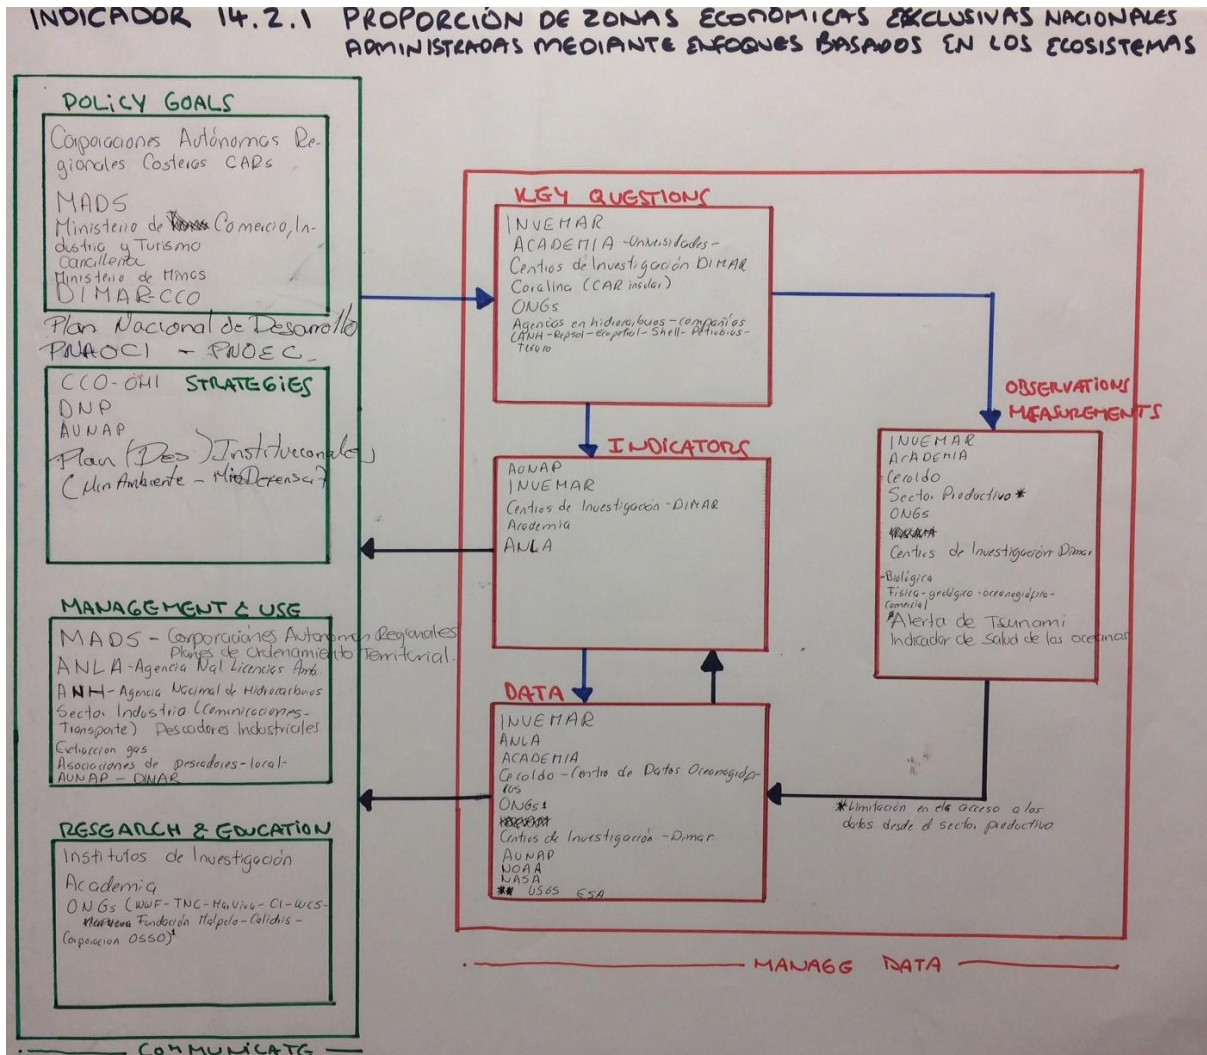 INDICADOR 14.2.1 PROPORCIÓN DE ZONAS ECONOMICAS EXCLUSIVAS NACIONALES
ADMINISTRADAS MEDIANTE ENFOQUES BASADOS EN LOS ECOSISTEMAS
POLICY GOALS
Corporaciones Autónomas Re-
gionales Costeras CARs
MADS
Ministerio de Comercio, In-
dustria y Turismo
Cancillería
Ministerio de Minas
DIMAR-CCO
Plan Nacional de Desarrollo
PNAOCI - PNOEC
STRATEGIES
CCO-OMI
DNP
AUNAP
Plan (Des) Institucionales
(MinAmbiente - MinDefensa)
MANAGEMENT & USE
MADS - Corporaciones Autonomas Regionales
Planes de Ordenamiento Territorial.
ANLA - Agencia Nal Licencias Amb.
ANH - Agencia Nacional de Hidrocarburos
Sector Industria (Comunicaciones-
Transporte) Pescadores Industriales
Extracción gas
Asociaciones de pescadores-local-
AUNAP - DIMAR
RESEARCH & EDUCATION
Institutos de Investigación
Academia
ONGs (WWF-TNC-MarViva-CI-WCS-
Fundación Malpelo-Calidris-
Corporación OSSO)¹
COMMUNICATE
KEY QUESTIONS
INVEMAR
ACADEMIA -Universidades-
Centros de Investigación DIMAR
Coralina (CAR insular)
ONGs
Agencias en hidrocarburos - compañías
(ANH-Repsol-Ecopetrol-Shell-Petrobras-
INDICATORS
AUNAP
INVEMAR
Centros de Investigación - DIMAR
Academia
ANLA
DATA
INVEMAR
ANLA
ACADEMIA
Cecoldo - Centro de Datos Oceanográfi-
cos
ONGs¹
Centros de Investigación - Dimar
AUNAP
NOAA
NASA
** USGS ESA
OBSERVATIONS
MEASUREMENTS
INVEMAR
ACADEMIA
Cecoldo
Sector Productivo *
ONGs
Centros de Investigación Dimar
-Biológica
Física-geológica-oceanográfica-
comercial
*Alerta de Tsunami
Indicador de Salud de los oceanos
*Limitación en el acceso a los
datos desde el sector productivo
MANAGE DATA